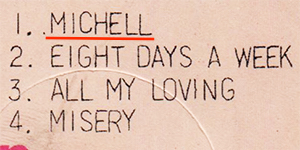 1. MICHELL
2. EIGHT DAYS A WEEK
3. ALL MY LOVING
4. MISERY